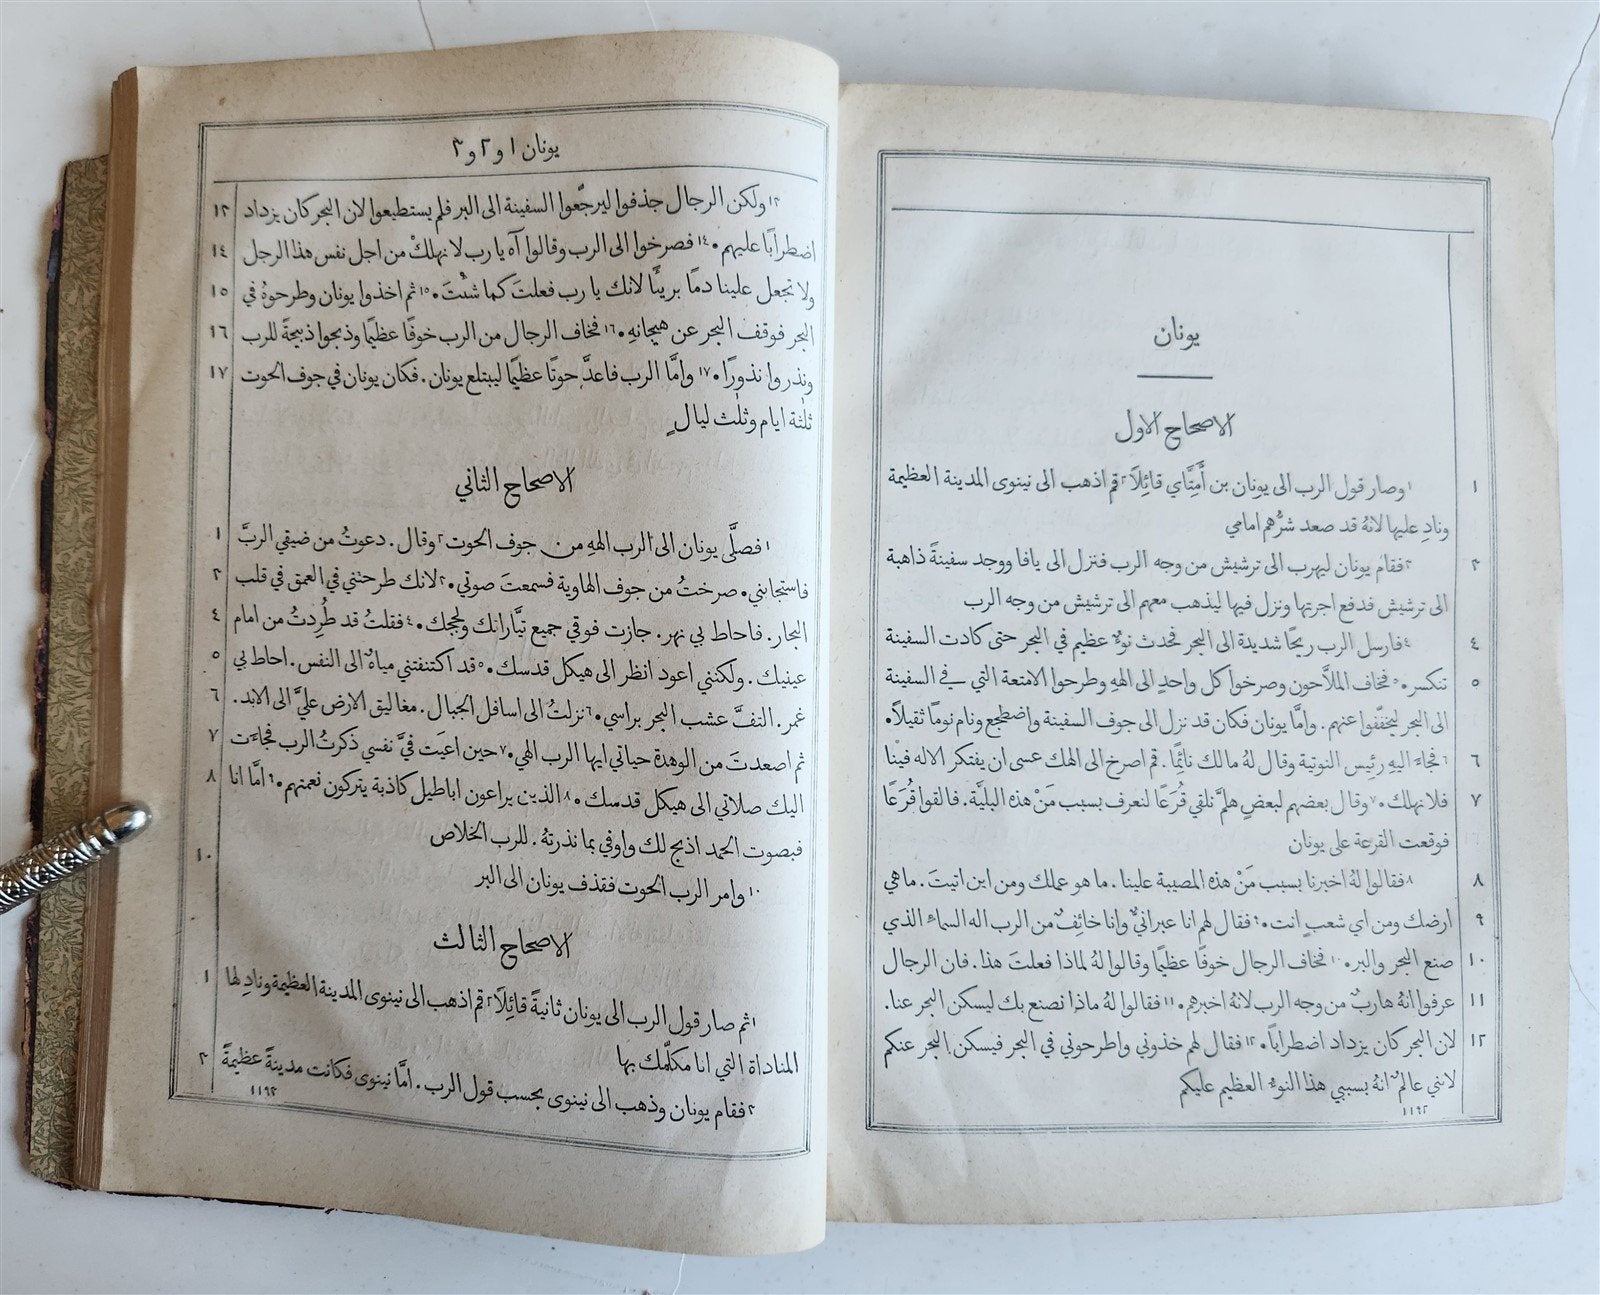 يونان
الاصحاح الاول
١ ١وصار قول الرب الى يونان بن أَمِتَّاي قائِلاً ٢قم اذهب الى نينوى المدينة العظيمة
ونادِ عليها لانهُ قد صعد شرُّهم امامي
٣ ٣فقام يونان ليهرب الى ترشيش من وجه الرب فنزل الى يافا ووجد سفينةً ذاهبة
الى ترشيش فدفع اجرتها ونزل فيها ليذهب معهم الى ترشيش من وجه الرب
٤ ٤فارسل الرب ريحًا شديدة الى البحر فحدث نوءٌ عظيم في البحر حتى كادت السفينة
٥ تنكسر. ٥فخاف الملاَّحون وصرخوا كل واحدٍ الى الههِ وطرحوا الامتعة التي في السفينة
الى البحر ليخفّفوا عنهم. وامَّا يونان فكان قد نزل الى جوف السفينة واضطجع ونام نومًا ثقيلاً.
٦ ٦فجاءَ اليهِ رئيس النوتية وقال لهُ ما لك نائِمًا. قم اصرخ الى الهك عسى ان يفتكر الاله فينا
٧ فلا نهلك. ٧وقال بعضهم لبعضٍ هلمَّ نلقي قُرَعًا لنعرف بسبب مَنْ هذه البليَّة. فالقوا قُرَعًا
فوقعت القرعة على يونان
٨ ٨فقالوا لهُ اخبرنا بسبب مَنْ هذه المصيبة علينا. ما هو عملك ومن اين اتيتَ. ما هي
٩ ارضك ومن اي شعبٍ انت. ٩فقال لهم انا عبرانيٌّ وانا خائِفٌ من الرب اله السماءِ الذي
١٠ صنع البحر والبر. ١٠فخاف الرجال خوفًا عظيمًا وقالوا لهُ لماذا فعلتَ هذا. فان الرجال
١١ عرفوا انهُ هاربٌ من وجه الرب لانهُ اخبرهم. ١١فقالوا لهُ ماذا نصنع بك ليسكن البحر عنا.
١٢ لان البحر كان يزداد اضطرابًا. ١٢فقال لهم خذوني واطرحوني في البحر فيسكن البحر عنكم
لانني عالمٌ انهُ بسببي هذا النوءُ العظيم عليكم
١١٩٢
يونان ١ و٢ و٣
١٣ ١٣ولكن الرجال جذفوا ليرجّعوا السفينة الى البر فلم يستطيعوا لان البحر كان يزداد
١٤ اضطرابًا عليهم. ١٤فصرخوا الى الرب وقالوا آه يا رب لا نهلكْ من اجل نفس هذا الرجل
١٥ ولا تجعل علينا دمًا بريئًا لانك يا رب فعلتَ كما شئتَ. ١٥ثم اخذوا يونان وطرحوهُ في
١٦ البحر فوقف البحر عن هيجانهِ. ١٦فخاف الرجال من الرب خوفًا عظيمًا وذبحوا ذبيحةً للرب
١٧ ونذروا نذورًا. ١٧وامَّا الرب فاعدَّ حوتًا عظيمًا ليبتلع يونان. فكان يونان في جوف الحوت
ثلٰثة ايام وثلٰث ليالٍ
الاصحاح الثاني
١ ١فصلَّى يونان الى الرب الههِ من جوف الحوت ٢وقال. دعوتُ من ضيقي الربَّ
٣ فاستجابني. صرختُ من جوف الهاوية فسمعتَ صوتي. ٣لانك طرحتني في العمق في قلب
٤ البحار. فاحاط بي نهر. جازت فوقي جميع تيَّاراتك ولججك. ٤فقلتُ قد طُرِدتُ من امام
٥ عينيك. ولكنني اعود انظر الى هيكل قدسك. ٥قد اكتنفتني مياهٌ الى النفس. احاط بي
٦ غمر. التفَّ عشب البحر براسي. ٦نزلتُ الى اسافل الجبال. مغاليق الارض عليَّ الى الابد.
٧ ثم اصعدتَ من الوهدة حياتي ايها الرب الهي. ٧حين اعيَت فيَّ نفسي ذكرتُ الرب فجاءَت
٨ اليك صلاتي الى هيكل قدسك. ٨الذين يراعون اباطيل كاذبة يتركون نعمتهم. ٩امَّا انا
فبصوت الحمد اذبح لك واوفي بما نذرتهُ. للرب الخلاص
١٠ ١٠وامر الرب الحوت فقذف يونان الى البر
الاصحاح الثالث
١ ١ثم صار قول الرب الى يونان ثانيةً قائِلاً ٢قم اذهب الى نينوى المدينة العظيمة ونادِ لها
المناداة التي انا مكلّمك بها
٣ ٣فقام يونان وذهب الى نينوى بحسب قول الرب. امَّا نينوى فكانت مدينةً عظيمةً
١١٩٣